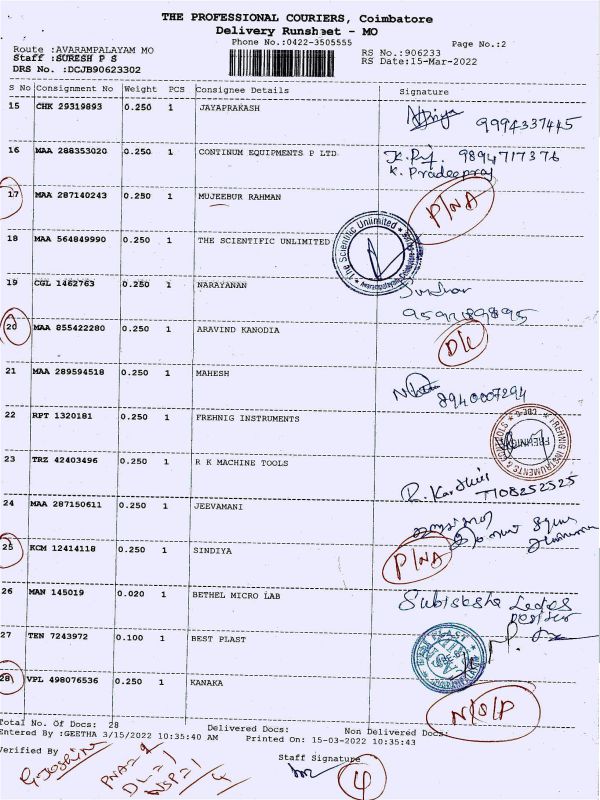 THE PROFESSIONAL COURIERS, Coimbatore
Delivery Runsheet - MO
Phone No.:0422-3505555 Page No.:2
Route :AVARAMPALAYAM MO RS No.:906233
Staff :SURESH P S RS Date:15-Mar-2022
DRS No. :DCJB90623302
S No Consignment No Weight PCS Consignee Details Signature
15 CHK 29319893 0.250 1 JAYAPRAKASH 9994337445
16 MAA 288353020 0.250 1 CONTINUM EQUIPMENTS P LTD 9894717376
K. Pradeepraj
17 MAA 287140243 0.250 1 MUJEEBUR RAHMAN P/NA
18 MAA 564849990 0.250 1 THE SCIENTIFIC UNLIMITED The Scientific Unlimited
19 CGL 1462763 0.250 1 NARAYANAN
20 MAA 855422280 0.250 1 ARAVIND KANODIA D/L
21 MAA 289594518 0.250 1 MAHESH 8940007294
22 RPT 1320181 0.250 1 FREHNIG INSTRUMENTS FREHNIG INSTRUMENTS & CONTROLS CBE-6
FREHNIG
23 TRZ 42403496 0.250 1 R K MACHINE TOOLS R. Karthui
7708252525
24 MAA 287150611 0.250 1 JEEVAMANI
25 KCM 12414118 0.250 1 SINDIYA P/NA
26 MAN 145019 0.020 1 BETHEL MICRO LAB
27 TEN 7243972 0.100 1 BEST PLAST BEST PLAST
28 VPL 498076536 0.250 1 KANAKA N/S/P
Total No. Of Docs: 28 Delivered Docs: Non Delivered Docs:
Entered By :GEETHA 3/15/2022 10:35:40 AM Printed On: 15-03-2022 10:35:43
Verified By Staff Signature
PNA= 2
DL= 1
NSP= 1
4
4